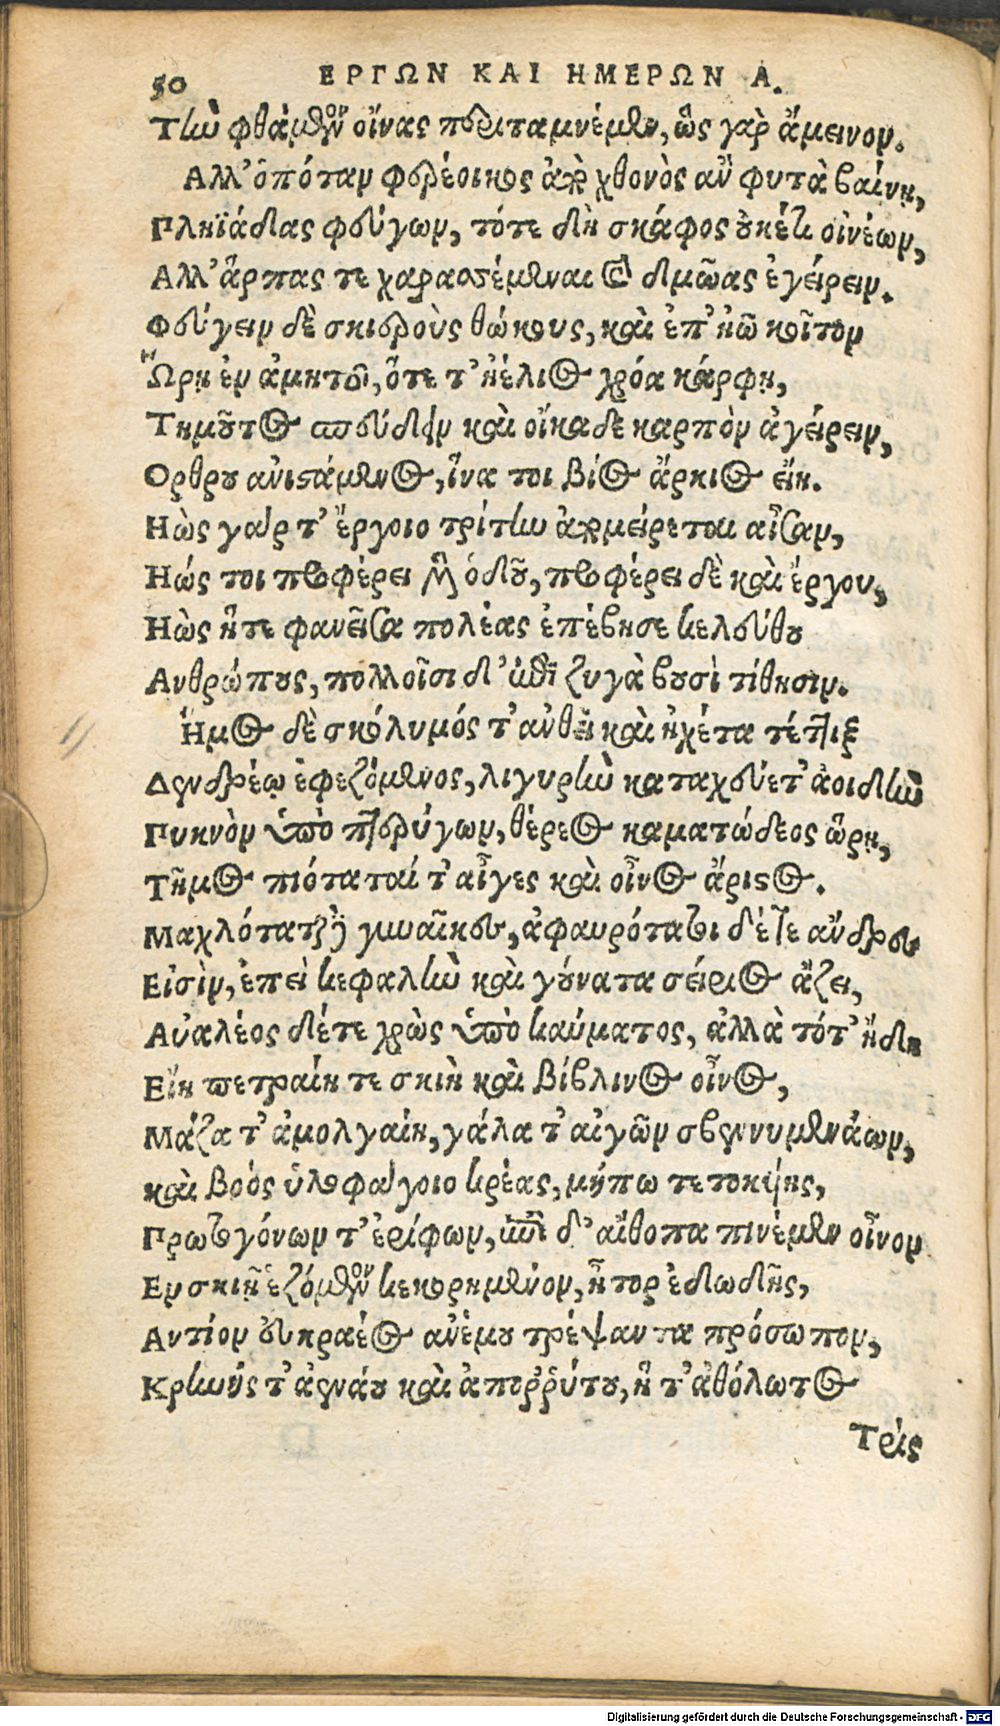 50 ΕΡΓΩΝ ΚΑΙ ΗΜΕΡΩΝ Α.
Τὴν φθάμενος οἴνας περιταμνέμεν, ὣς γὰρ ἄμεινον.
Αλλ' ὁπόταν φερέοικος ἀπὸ χθονὸς ἂν φυτὰ βαίνῃ,
Πληϊάδας φεύγων, τότε δὴ σκάφος οὐκέτι οἰνέων,
Αλλ' ἅρπας τε χαρασσέμεναι καὶ δμῶας ἐγείρειν.
Φεύγειν δὲ σκιεροὺς θώκους, καὶ ἐπ' ἠῶ κοῖτον
Ὥρῃ ἐν ἀμητοῦ, ὅτε τ' ἠέλιος χρόα κάρφῃ,
Τημοῦτος σπεύδειν καὶ οἴκαδε καρπὸν ἀγείρειν,
Ορθρου ἀνιστάμενος, ἵνα τοι βίος ἄρκιος εἴη.
Ηὼς γάρ τ' ἔργοιο τρίτην ἀπομείρεται αἶσαν,
Ηώς τοι προφέρει μὲν ὁδοῦ, προφέρει δὲ καὶ ἔργου,
Ηὼς ἥτε φανεῖσα πολέας ἐπέβησε κελεύθου
Ανθρώπους, πολλοῖσι δ' ἐπὶ ζυγὰ βουσὶ τίθησιν.
Ἦμος δὲ σκόλυμός τ' ἀνθεῖ καὶ ἠχέτα τέττιξ
Δενδρέῳ ἐφεζόμενος, λιγυρὴν καταχεύετ' ἀοιδὴν
Πυκνὸν ὑπὸ πτερύγων, θέρεος καματώδεος ὥρῃ,
Τῆμος πιόταταί τ' αἶγες καὶ οἶνος ἄριστος.
Μαχλόταται γυναῖκες, ἀφαυρότατοι δέ τε ἄνδρες
Εἰσὶν, ἐπεὶ κεφαλὴν καὶ γούνατα σείριος ἄζει,
Αὐαλέος δέτε χρὼς ὑπὸ καύματος, ἀλλὰ τότ' ἤδη
Εἴη πετραίη τε σκιὴ καὶ βίβλινος οἶνος,
Μάζα τ' ἀμολγαίη, γάλα τ' αἰγῶν σβεννυμενάων,
καὶ βοός ὑλοφάγοιο κρέας, μήπω τετοκυίης,
Πρωτογόνων τ' ἐρίφων, ἐπὶ δ' αἴθοπα πινέμεν οἶνον
Εν σκιῇ ἑζόμενον κεκορημένον, ἦτορ ἐδωδῆς,
Αντίον εὐκραέος ἀνέμου τρέψαντα πρόσωπον,
Κρήνης τ' ἀενάου καὶ ἀπορρύτου, ἥ τ' ἀθόλωτος
Τρὶς
Digitalisierung gefördert durch die Deutsche Forschungsgemeinschaft - DFG